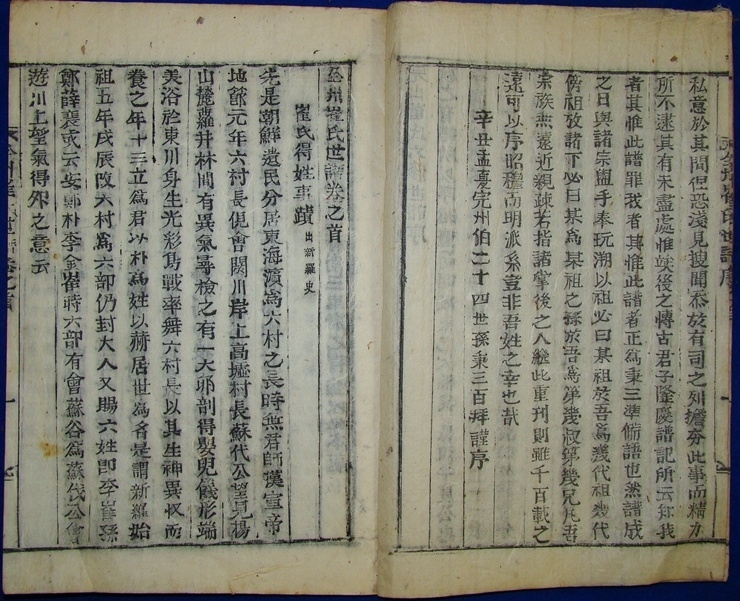 私意於其間但恐淺見搜聞忝於有司之列擔夯此事而精力
所不逮其有未盡處惟竢後之博古君子隆慶譜記所云知我
者其惟此譜罪我者其惟此譜者正爲秉三準備語也然譜成
之日與諸宗盥手奉玩溯以祖必曰某祖於吾爲幾代祖幾代
傍祖攷諸下必曰某爲某祖之孫於吾爲第幾叔第幾兄凡吾
宗族無遠近親疎若指諸掌後之人繼此重刊則雖千百載之
遠可以序昭穆而明派系豈非吾姓之幸也哉
辛丑孟夏完州伯二十四世孫秉三百拜謹序
全州崔氏世譜卷之首
崔氏得姓事蹟 出新羅史
先是朝鮮遺民分居東海濱爲六村之長時無君師漢宣帝
地節元年六村長俔會閼川岸上高墟村長蘇伐公望見楊
山麓蘿井林間有異氣尋檢之有一大卵剖得嬰兒儀形端
美浴於東川身生光彩鳥戰率舞六村長以其生神異收而
養之年十三立爲君以朴爲姓以赫居世爲名是謂新羅始
祖五年戊辰改六村爲六部仍封大人又賜六姓卽李崔孫
鄭薛裵或云安鄭朴李金崔時六部有會蘇谷爲蘇伐公會
遊川上望氣得卵之意云